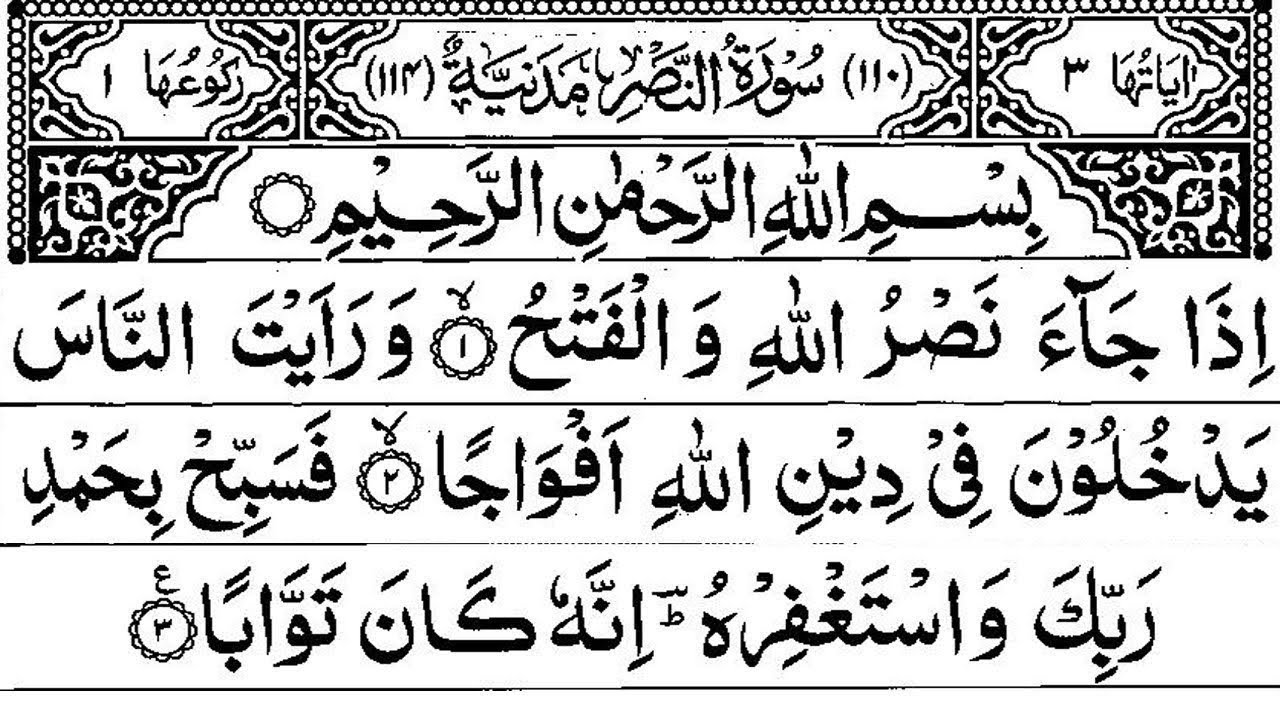 اٰيَاتُهَا ٣ (١١٠) سُوْرَةُ النَّصْرِ مَدَنِيَّةٌ (١١٤) رُكُوْعُهَا ١
بِسْمِ اللّٰهِ الرَّحْمٰنِ الرَّحِيْمِ
اِذَا جَآءَ نَصْرُ اللّٰهِ وَ الْفَتْحُ ۙ۱ وَ رَاَيْتَ النَّاسَ
يَدْخُلُوْنَ فِیْ دِيْنِ اللّٰهِ اَفْوَاجًا ۙ۲ فَسَبِّحْ بِحَمْدِ
رَبِّكَ وَ اسْتَغْفِرْهُ ؕ اِنَّهٗ كَانَ تَوَّابًا ۳ ع